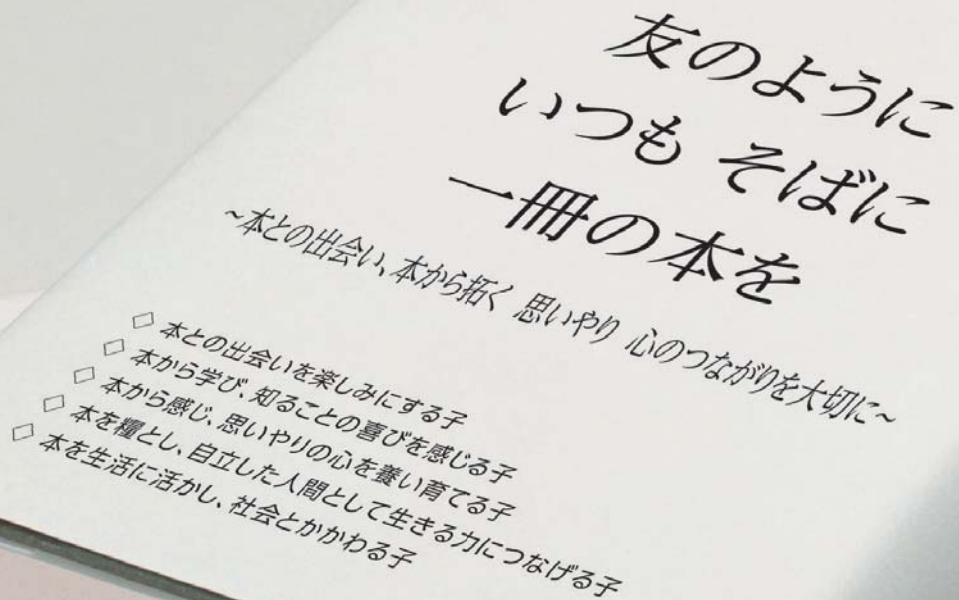 友のように
いつも そばに
一冊の本を
~本との出会い、本から拓く 思いやり 心のつながりを大切に~
□ 本との出会いを楽しみにする子
□ 本から学び、知ることの喜びを感じる子
□ 本から感じ、思いやりの心を養い育てる子
□ 本を糧とし、自立した人間として生きる力につなげる子
□ 本を生活に活かし、社会とかかわる子